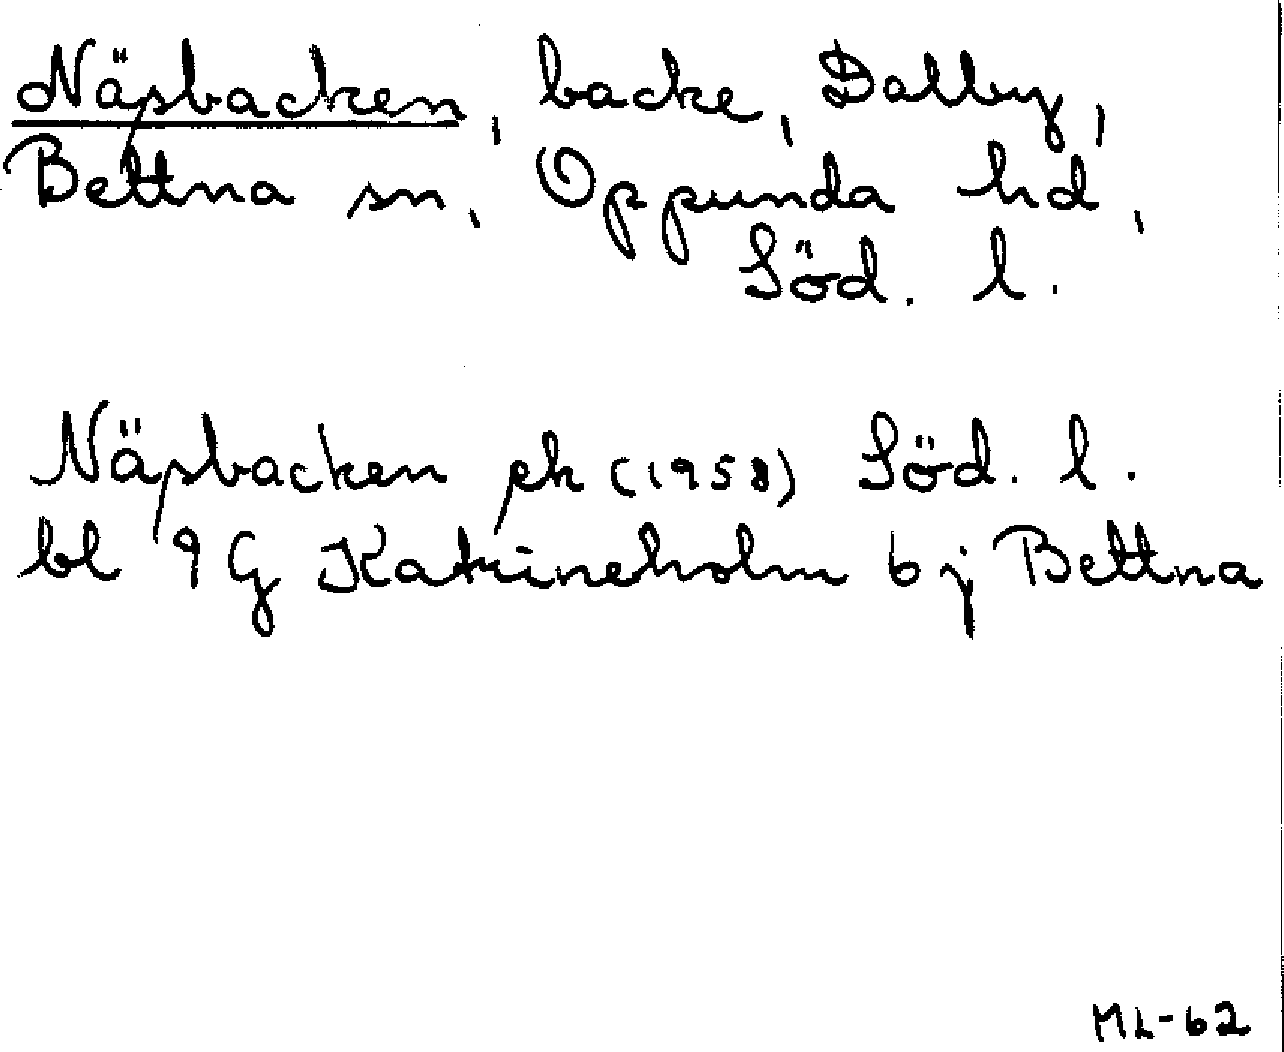 Näsbacken, backe, Dalby,
Bettna sn, Oppunda hd,
Söd. l.
Näsbacken ek (1958) Söd. l.
bl 9G Katrineholm 6j Bettna
ML-62